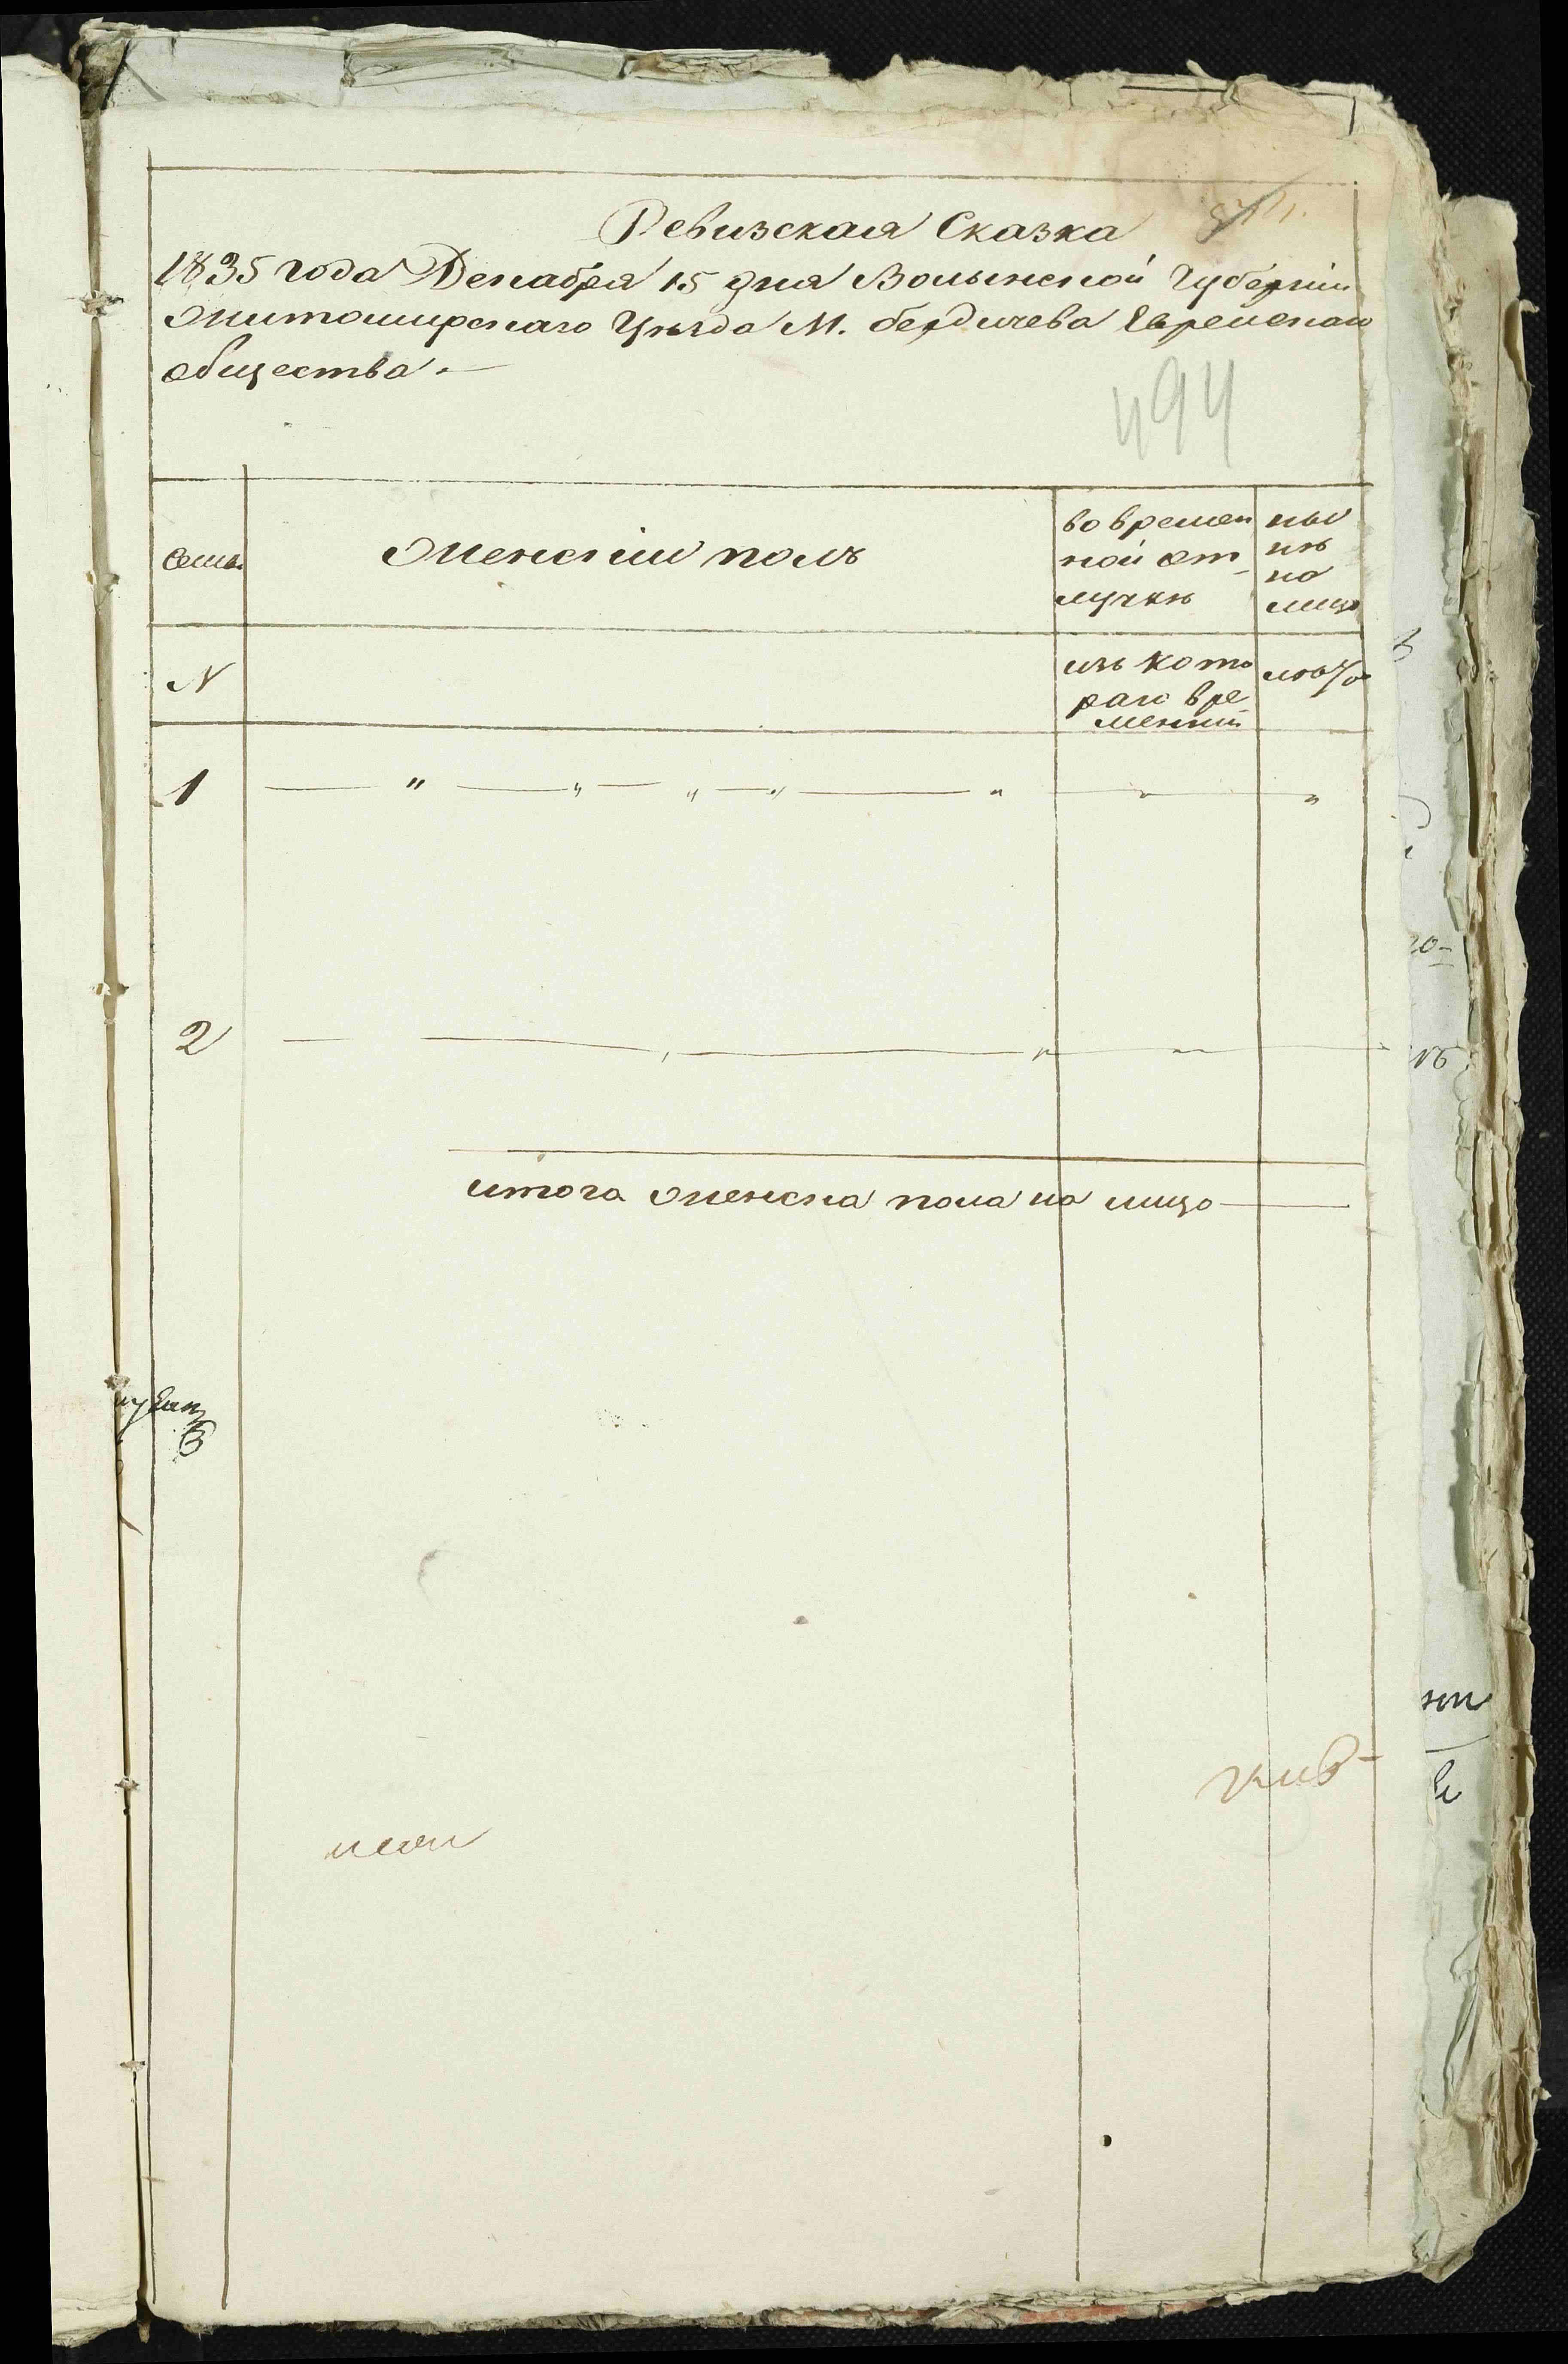 Ревизская Сказка
1835 года Декабря 15 дня Волынской Губернiи
Житомирскаго Уѣзда М. бердичева Еврейскаго
общества.—
494
семьи
Женскiй полъ
во времен
ной от
лучкѣ
ны
нѣ
на
лицо
N
изъ кото
раго вре
менни
лѣта
1 — " — " — " — " — " — " — "
2 — — " — " — " —
итого женска пола на лицо —